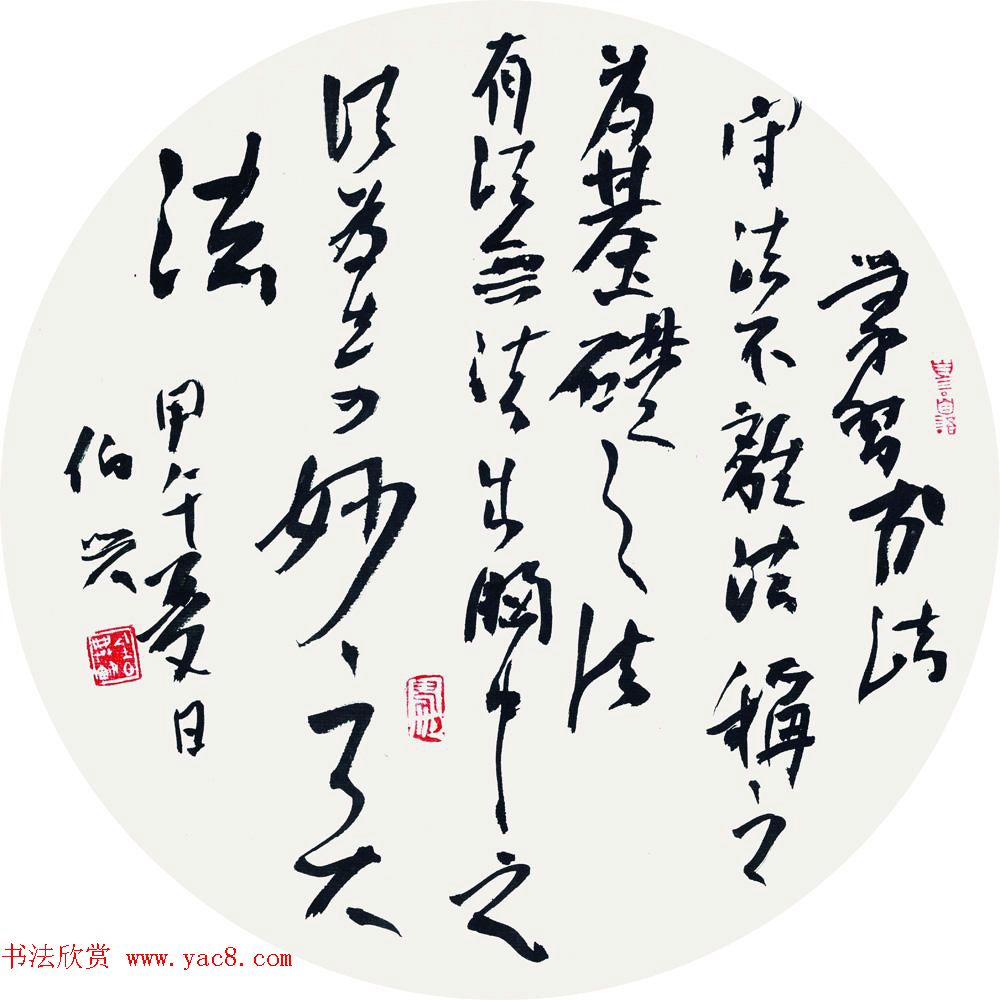 學習书法
守法不離法稱之
為基礎之法
有法無法出胸中之
法为妙之大
法
甲午夏日
伯兴
书法欣赏 www.yac8.com